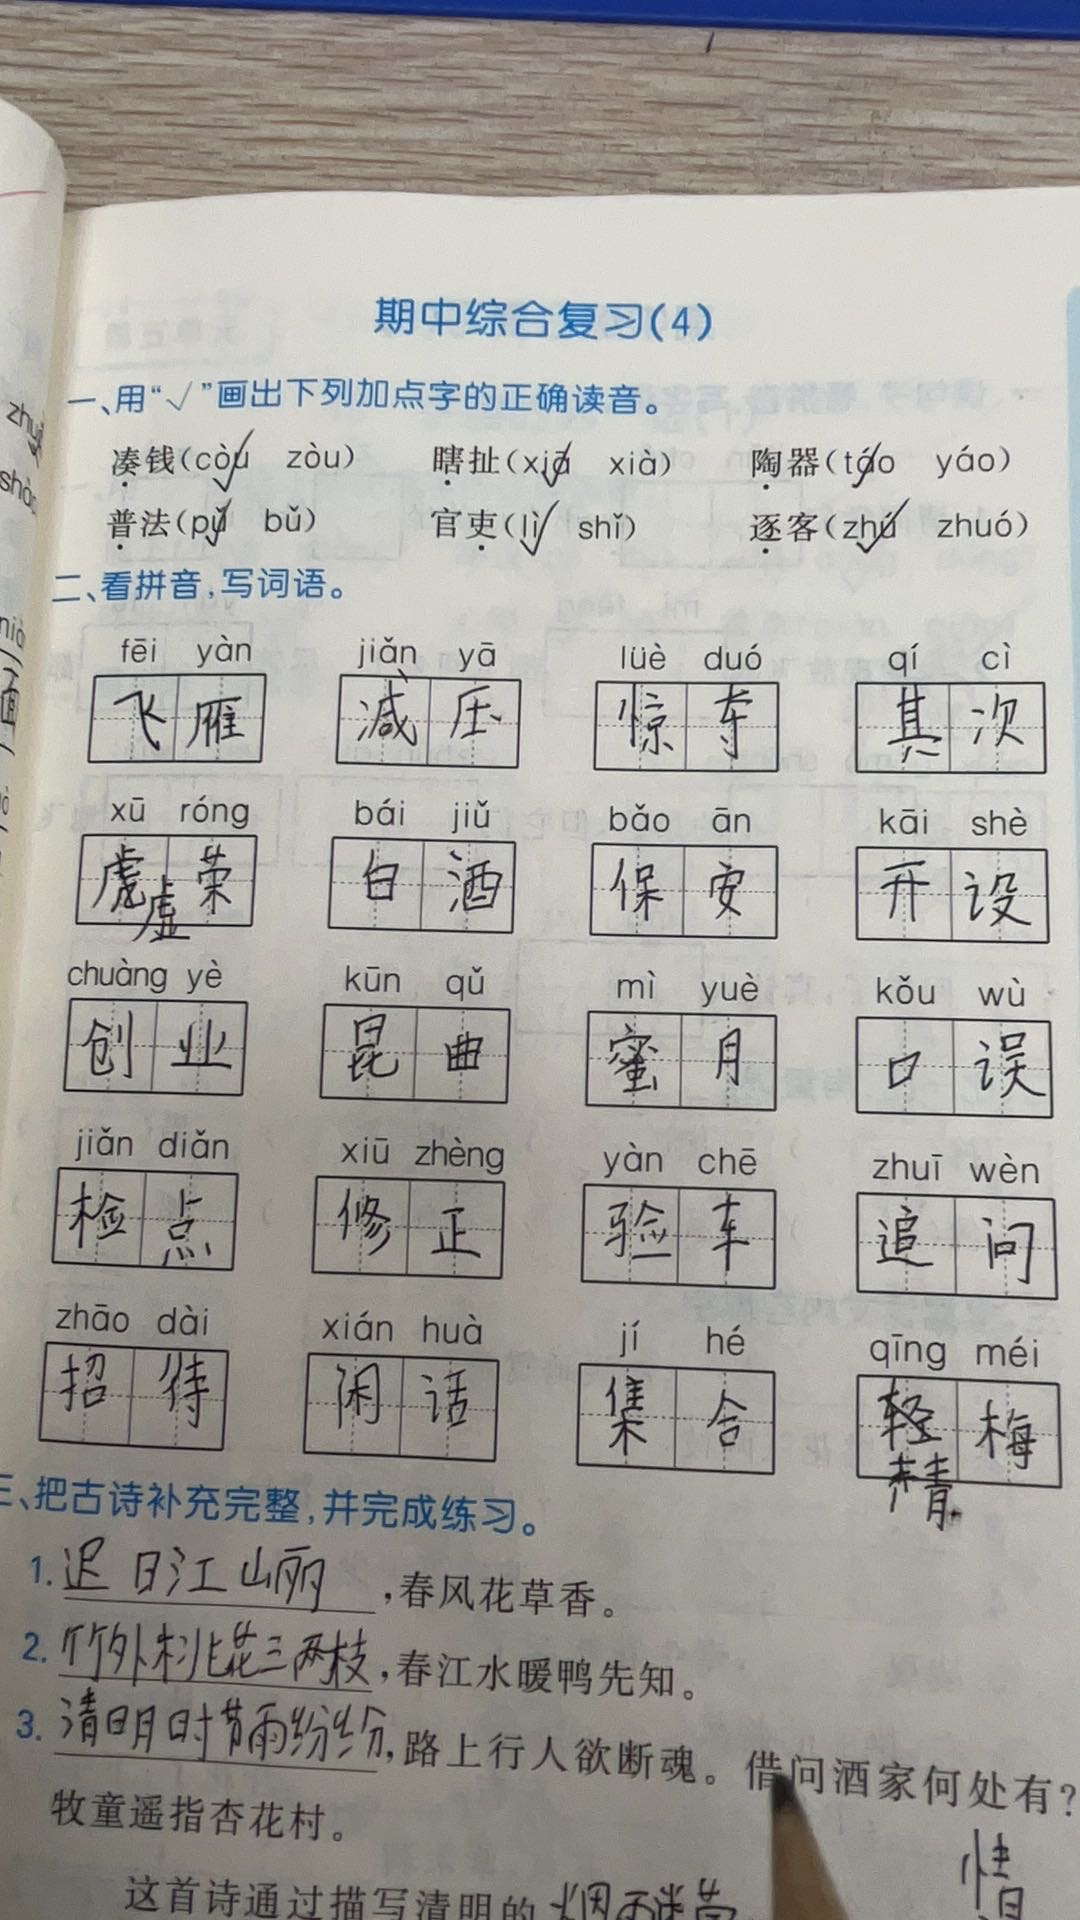 期中综合复习(4)
一、用“√”画出下列加点字的正确读音。
凑钱(còu zòu) 瞎扯(xiā xià) 陶器(táo yáo)
普法(pǔ bǔ) 官吏(lì shǐ) 逐客(zhú zhuó)
二、看拼音,写词语。
fēi yàn jiǎn yā lüè duó qí cì
飞雁 减压 惊夺 其次
xū róng bái jiǔ bǎo ān kāi shè
虎荣 白酒 保安 开设
虚
chuàng yè kūn qǔ mì yuè kǒu wù
创业 昆曲 蜜月 口误
jiǎn diǎn xiū zhèng yàn chē zhuī wèn
检点 修正 验车 追问
zhāo dài xián huà jí hé qīng méi
招待 闲话 集合 轻梅
三、把古诗补充完整,并完成练习。
1. 迟日江山丽,春风花草香。
2. 竹外桃花三两枝,春江水暖鸭先知。
3. 清明时节雨纷纷,路上行人欲断魂。借问酒家何处有?
牧童遥指杏花村。
这首诗通过描写清明的